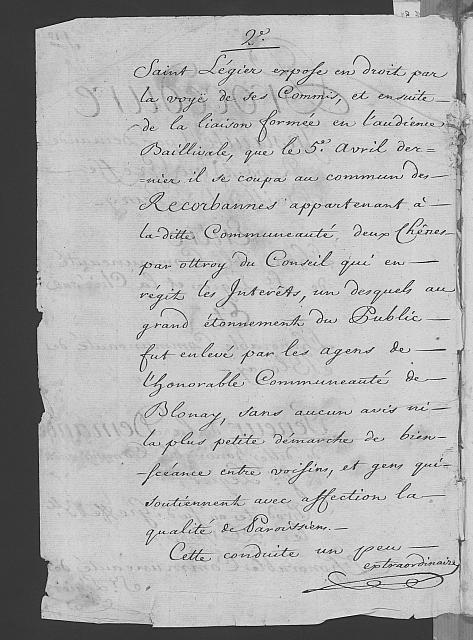 2.e
Saint Légier expose en droit par
la voyë de ses Commis, et ensuite
de la liaison formée en l'audience
Baillivale, que le 5.e Avril der=
=nier il se coupa au commun des
Recorbannes appartenant à
la ditte Communeauté, deux Chênes
par ottroy du Conseil qui en
régit les Interêts, un desquels au
grand étonnement du Public
fut enlevé par les agens de
l'honorable Communeauté de
Blonay, sans aucun avis ni
la plus petite démarche de bien-
scéance entre voisins, et gens qui
soutiennent avec affection la
qualité de Paroissiens.
Cette conduite un peu
extraordinaire